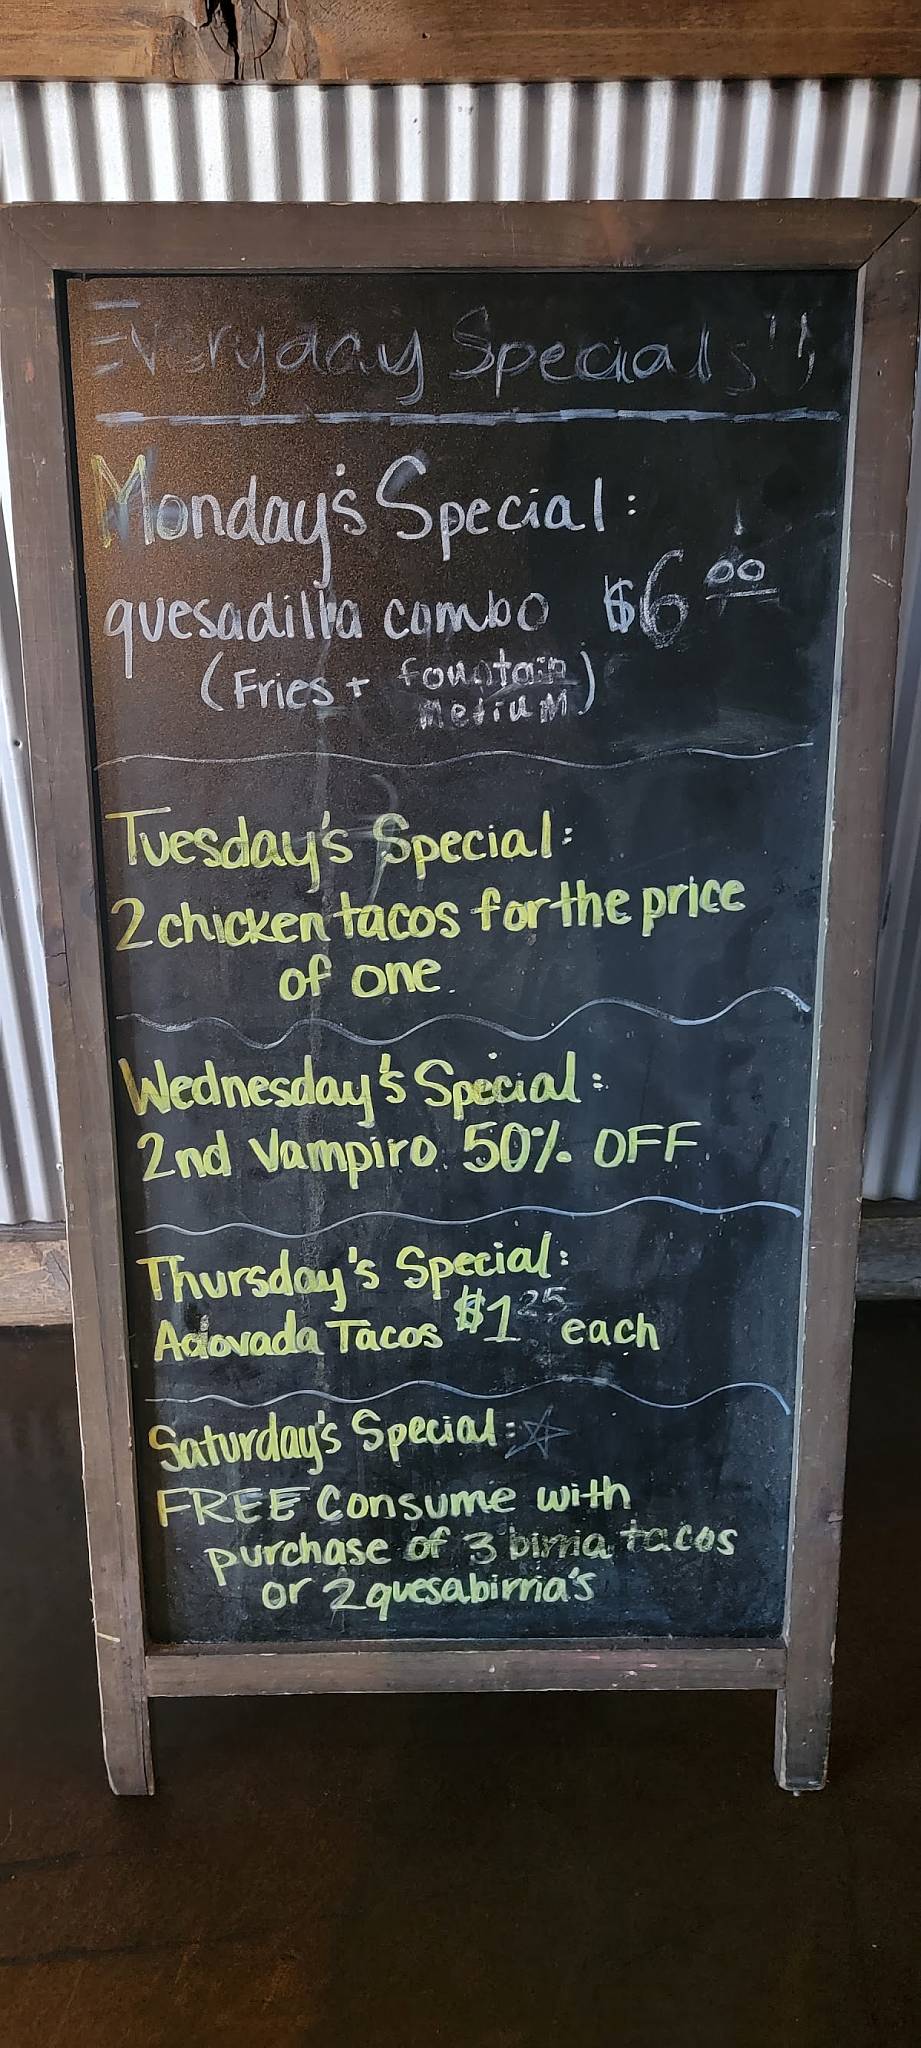 Everyday Specials!!
Monday's Special:
quesadilla combo $6.00
(Fries + fountain medium)
Tuesday's Special:
2 chicken tacos for the price
of one.
Wednesday's Special:
2nd Vampiro 50% OFF
Thursday's Special:
Adovada Tacos $1.25 each
Saturday's Special:
FREE Consume with
purchase of 3 birria tacos
or 2 quesabirria's